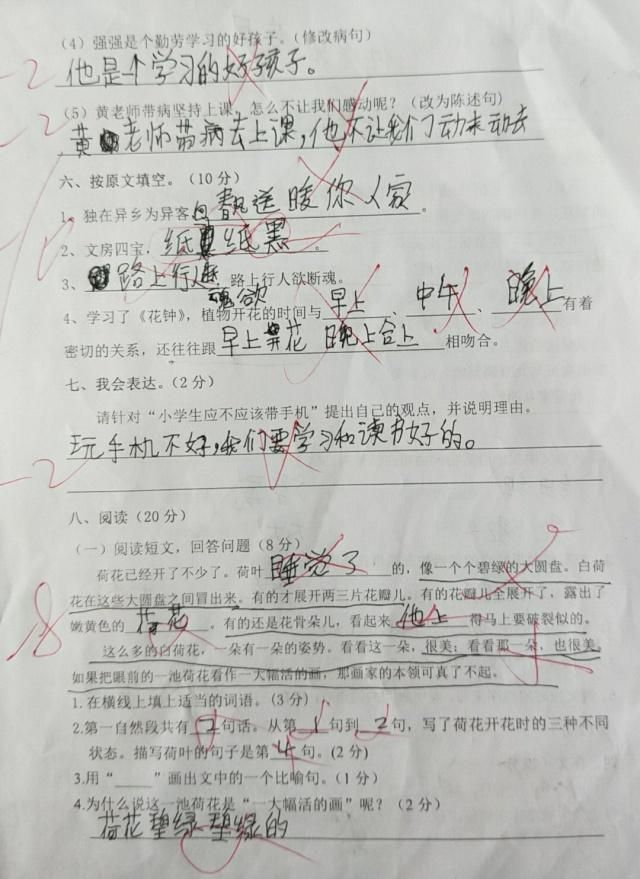 (4)强强是个勤劳学习的好孩子。(修改病句)
-2 他是个学习的好孩子。
(5)黄老师带病坚持上课,怎么不让我们感动呢?(改为陈述句)
-2 黄老师带病去上课,他不让我们了动来动去
六、按原文填空。(10分)
1、独在异乡为异客, 送暖你人家。
2、文房四宝, 纸 纸黑。
3、路上行人 路上行人欲断魂。
4、学习了《花钟》,植物开花的时间与 早上 、 中午 、 晚上 有着
密切的关系,还往往跟 早上开花 晚上合上 相吻合。
七、我会表达。(2分)
请针对“小学生应不应该带手机”提出自己的观点,并说明理由。
玩手机不好,我们要学习和读书好的。
-2
八、阅读(20分)
(一)阅读短文,回答问题(8分)
荷花已经开了不少了。荷叶 睡觉了 的,像一个个碧绿的大圆盘。白荷
花在这些大圆盘之间冒出来。有的才展开两三片花瓣儿。有的花瓣儿全展开了,露出了
-8 嫩黄色的 荷花 。有的还是花骨朵儿,看起来 他上 得马上要破裂似的。
这么多的白荷花,一朵有一朵的姿势。看看这一朵,很美;看看那一朵,也很美。
如果把眼前的一池荷花看作一大幅活的画,那画家的本领可真了不起。
1.在横线上填上适当的词语。(3分)
2.第一自然段共有 句话。从第 1 句到 2 句,写了荷花开花时的三种不同
状态。描写荷叶的句子是第 4 句。(2分)
3.用“____”画出文中的一个比喻句。(1分)
4.为什么说这一池荷花是“一大幅活的画”呢?(2分)
荷花 绿 绿的